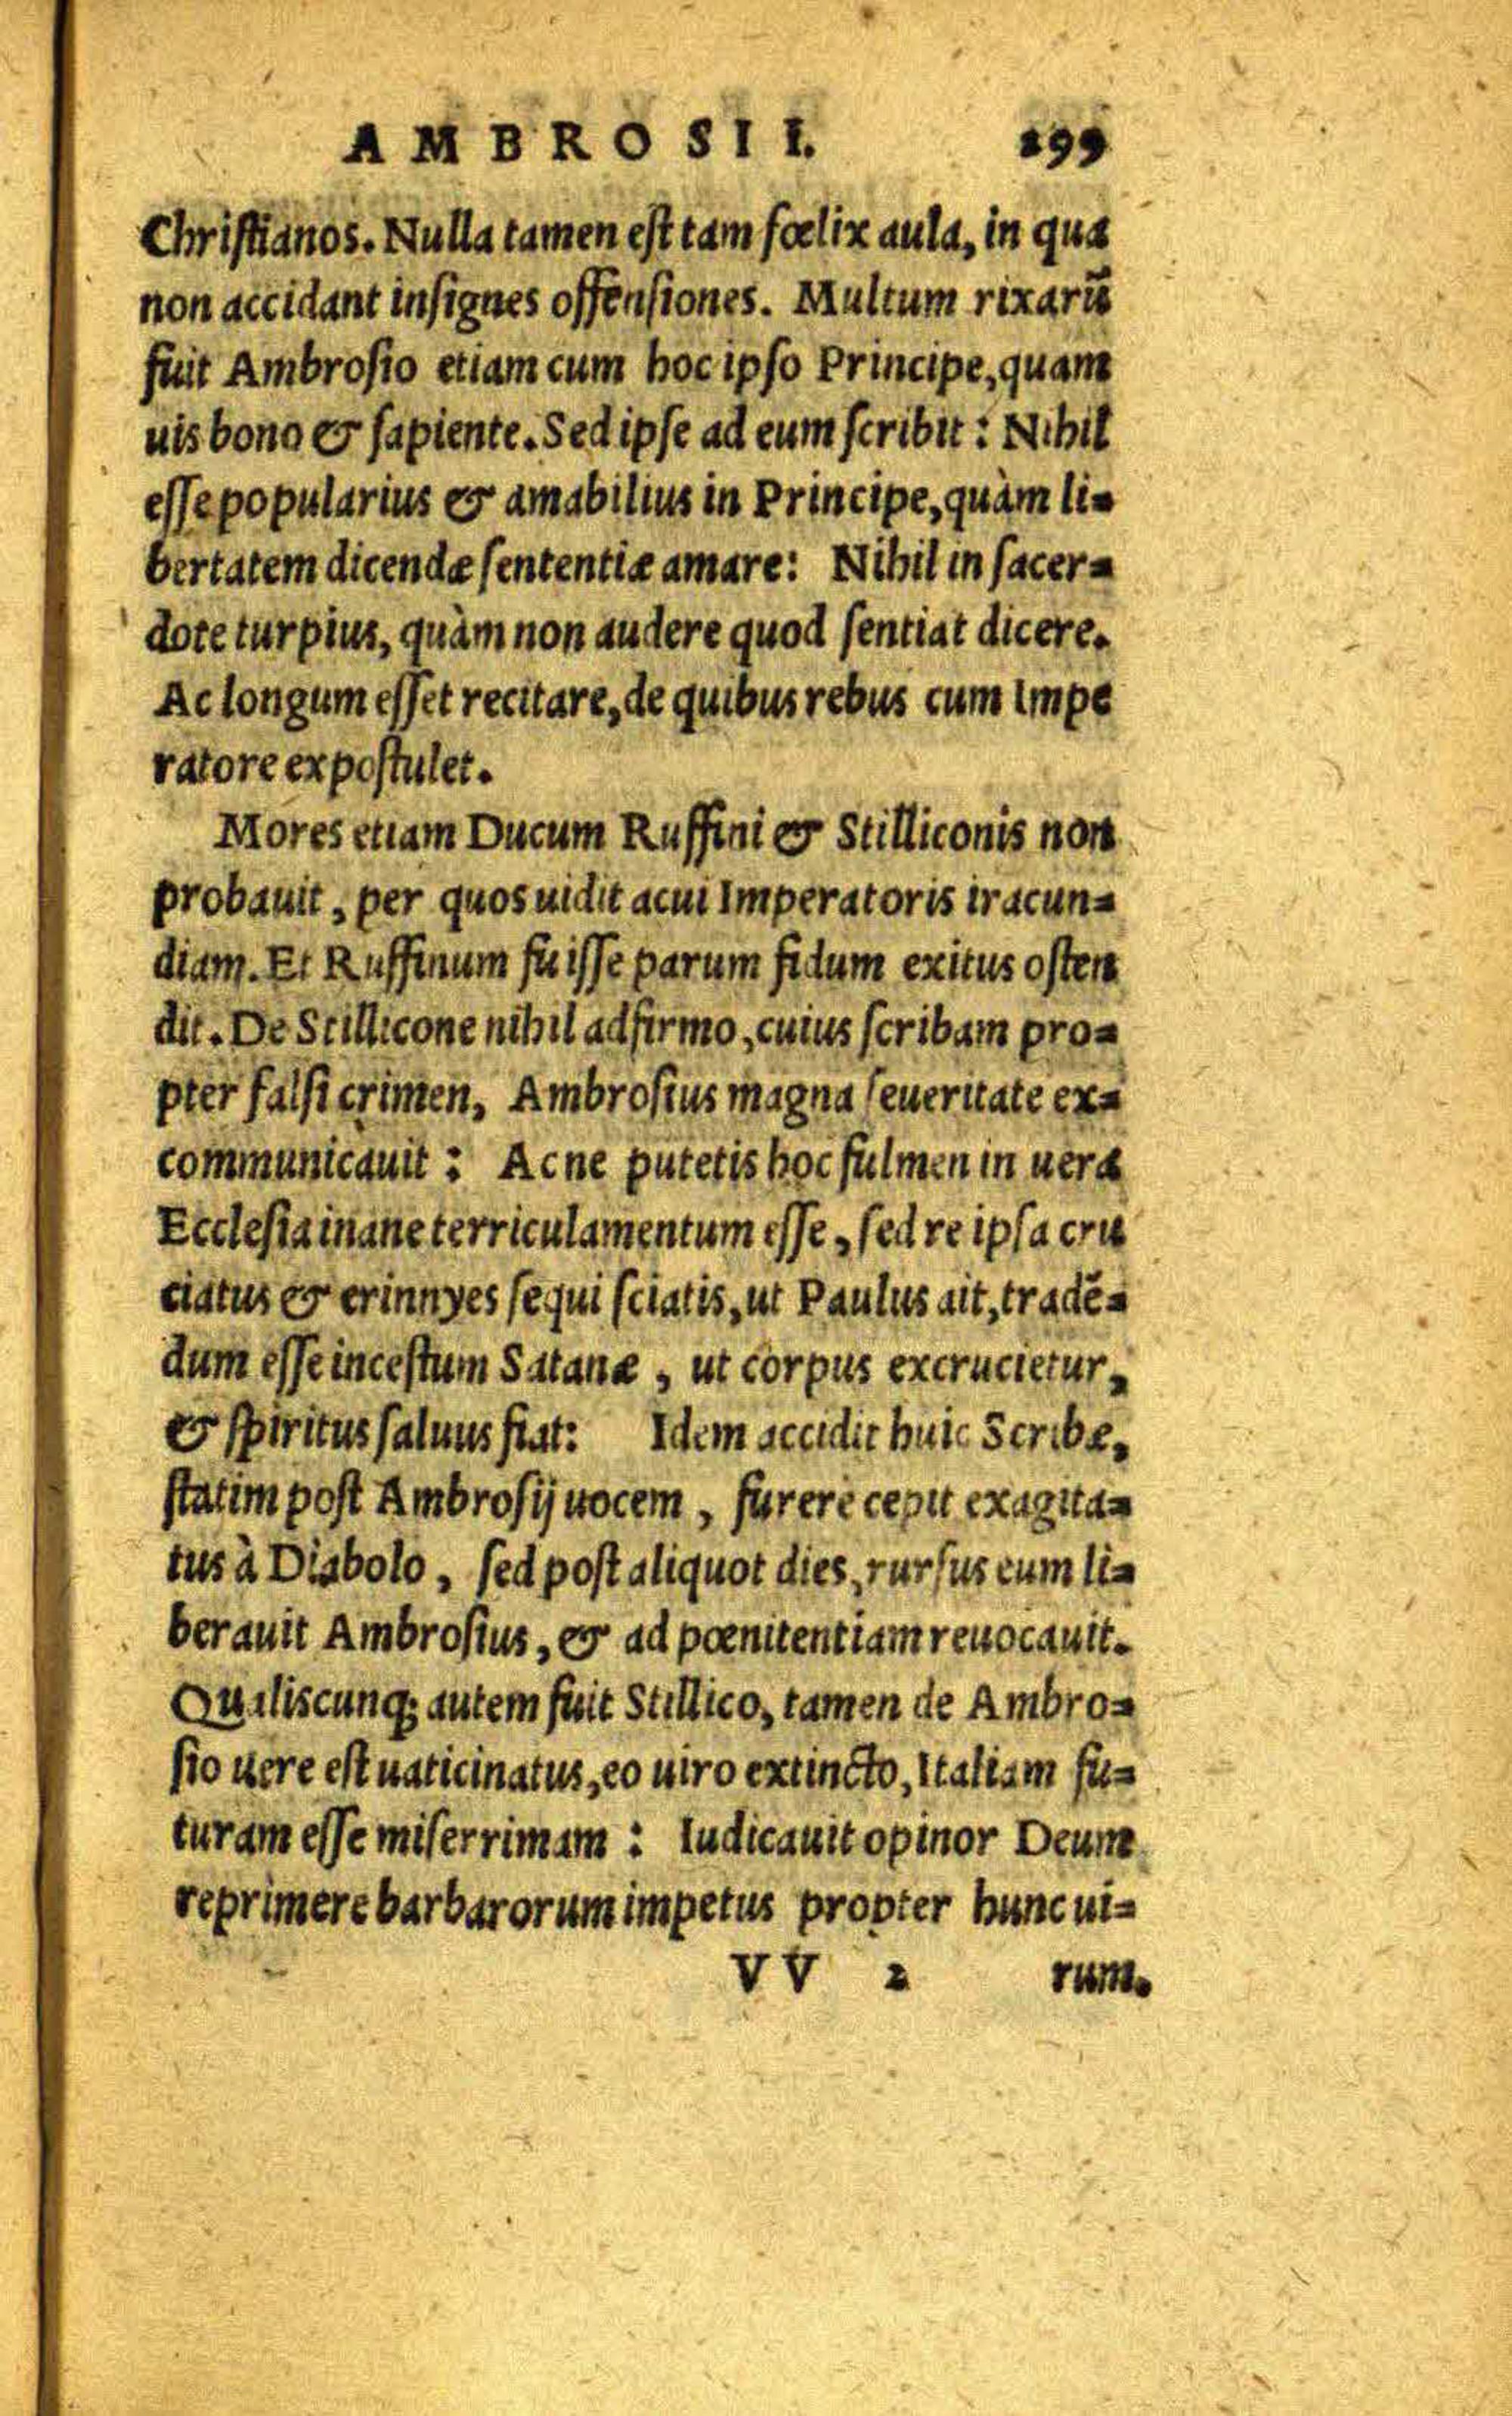 AMBROSII. 199
Chriſtianos. Nulla tamen eſt tam fœlix aula, in qua
non accidant inſignes offenſiones. Multum rixarũ
fuit Ambroſio etiam cum hoc ipſo Principe, quam
uis bono & ſapiente. Sed ipſe ad eum ſcribit: Nihil
eſſe popularius & amabilius in Principe, quàm li-
bertatem dicendæ ſententiæ amare: Nihil in ſacer-
dote turpius, quàm non audere quod ſentiat dicere.
Ac longum eſſet recitare, de quibus rebus cum Impe
ratore expoſtulet.
Mores etiam Ducum Ruffini & Stilliconis non
probauit, per quos uidit acui Imperatoris iracun-
diam. Et Ruffinum fuiſſe parum fidum exitus oſten
dit. De Stillicone nihil adfirmo, cuius ſcribam pro-
pter falſi crimen, Ambroſius magna ſeueritate ex-
communicauit: Ac ne putetis hoc fulmen in uera
Eccleſia inane terriculamentum eſſe, ſed re ipſa cru
ciatus & erinnyes ſequi ſciatis, ut Paulus ait, tradẽ-
dum eſſe inceſtum Satanæ, ut corpus excrucietur,
& ſpiritus ſaluus fiat: Idem accidit huic Scribæ,
ſtatim poſt Ambroſij uocem, furere cepit exagita-
tus à Diabolo, ſed poſt aliquot dies, rurſus eum li-
berauit Ambroſius, & ad pœnitentiam reuocauit.
Qualiscunq; autem fuit Stillico, tamen de Ambro-
ſio uere eſt uaticinatus, eo uiro extincto, Italiam fu-
turam eſſe miſerrimam: Iudicauit opinor Deum
reprimere barbarorum impetus propter hunc ui-
VV 2 rum.